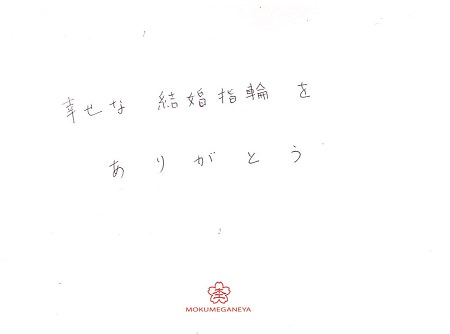 幸せな 結婚指輪 を
ありがとう
MOKUMEGANEYA